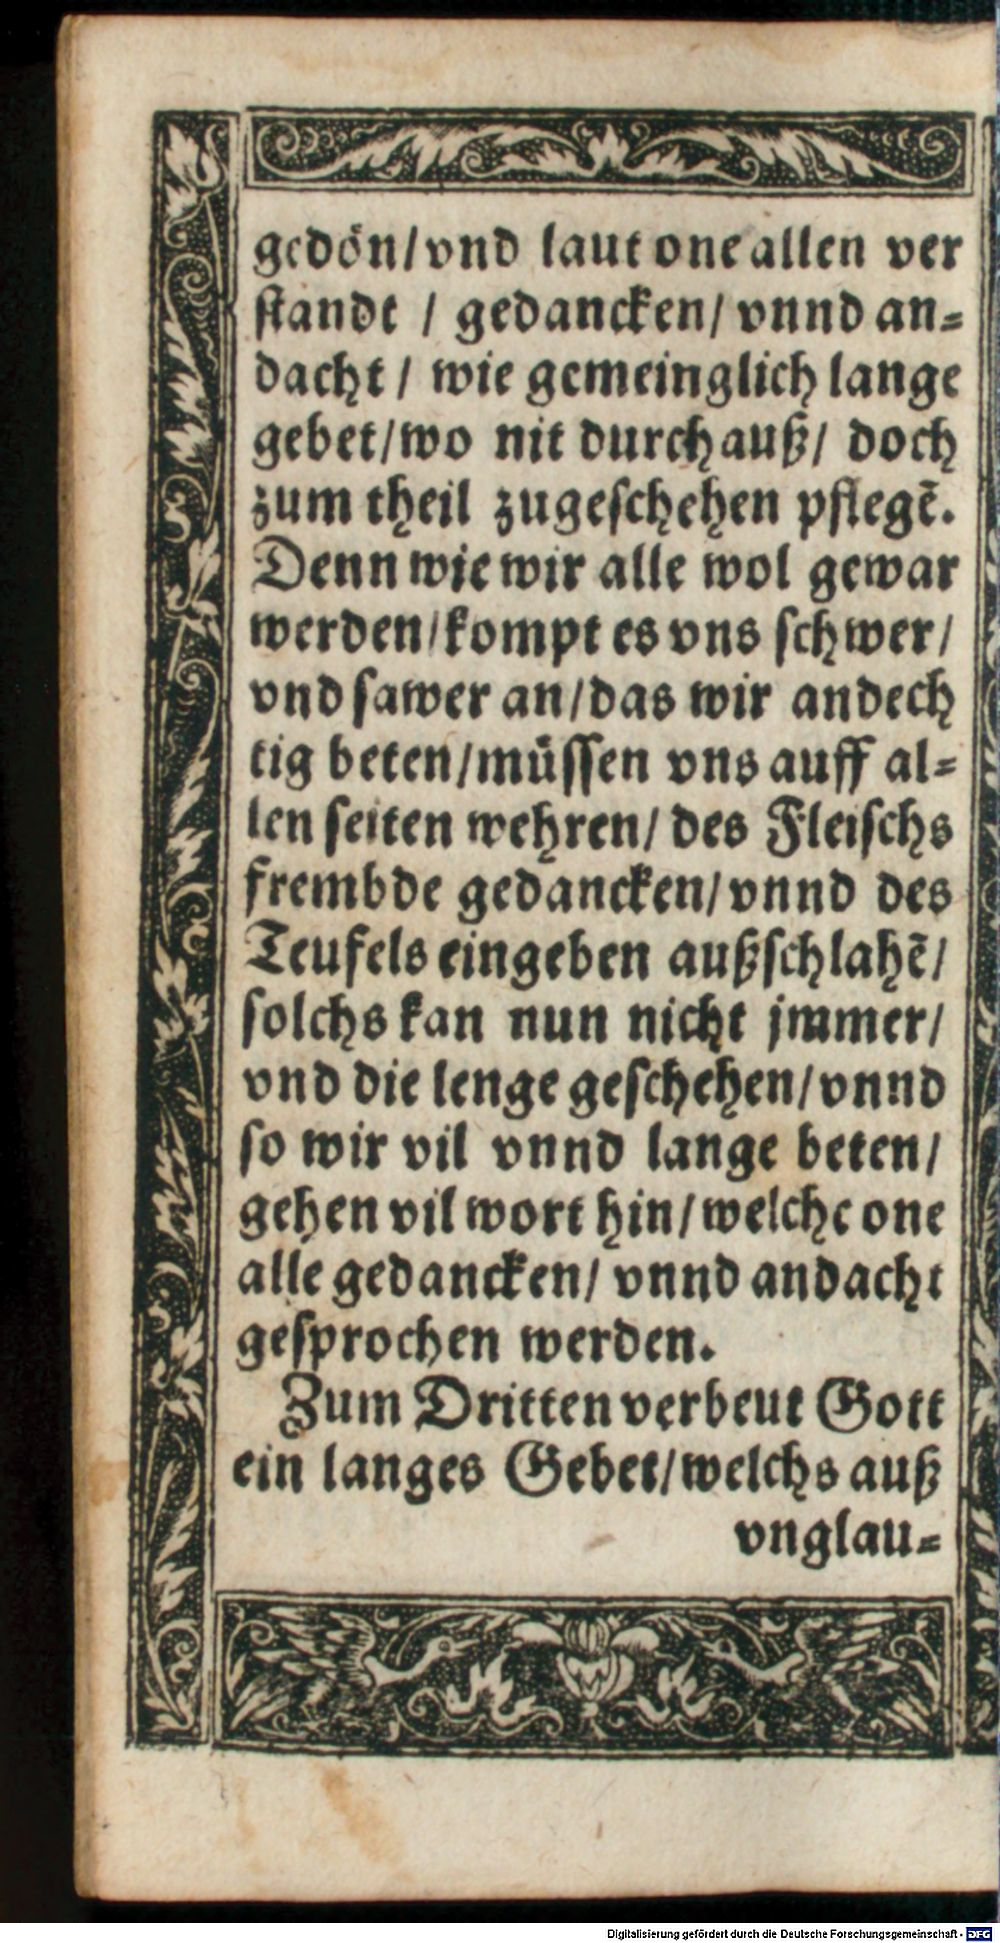 gedön/vnd laut one allen ver
standt / gedancken/ vnnd an=
dacht / wie gemeinglich lange
gebet/wo nit durchauß/ doch
zum theil zugeschehen pflegẽ.
Denn wie wir alle wol gewar
werden/kompt es vns schwer/
vnd sawer an/das wir andech
tig beten/müssen vns auff al=
len seiten wehren/ des Fleischs
frembde gedancken/vnnd des
Teufels eingeben außschlahẽ/
solchs kan nun nicht jmmer/
vnd die lenge geschehen/vnnd
so wir vil vnnd lange beten/
gehen vil wort hin/welche one
alle gedancken/ vnnd andacht
gesprochen werden.
Zum Dritten verbeut Gott
ein langes Gebet/welchs auß
vnglau=
Digitalisierung gefördert durch die Deutsche Forschungsgemeinschaft - DFG